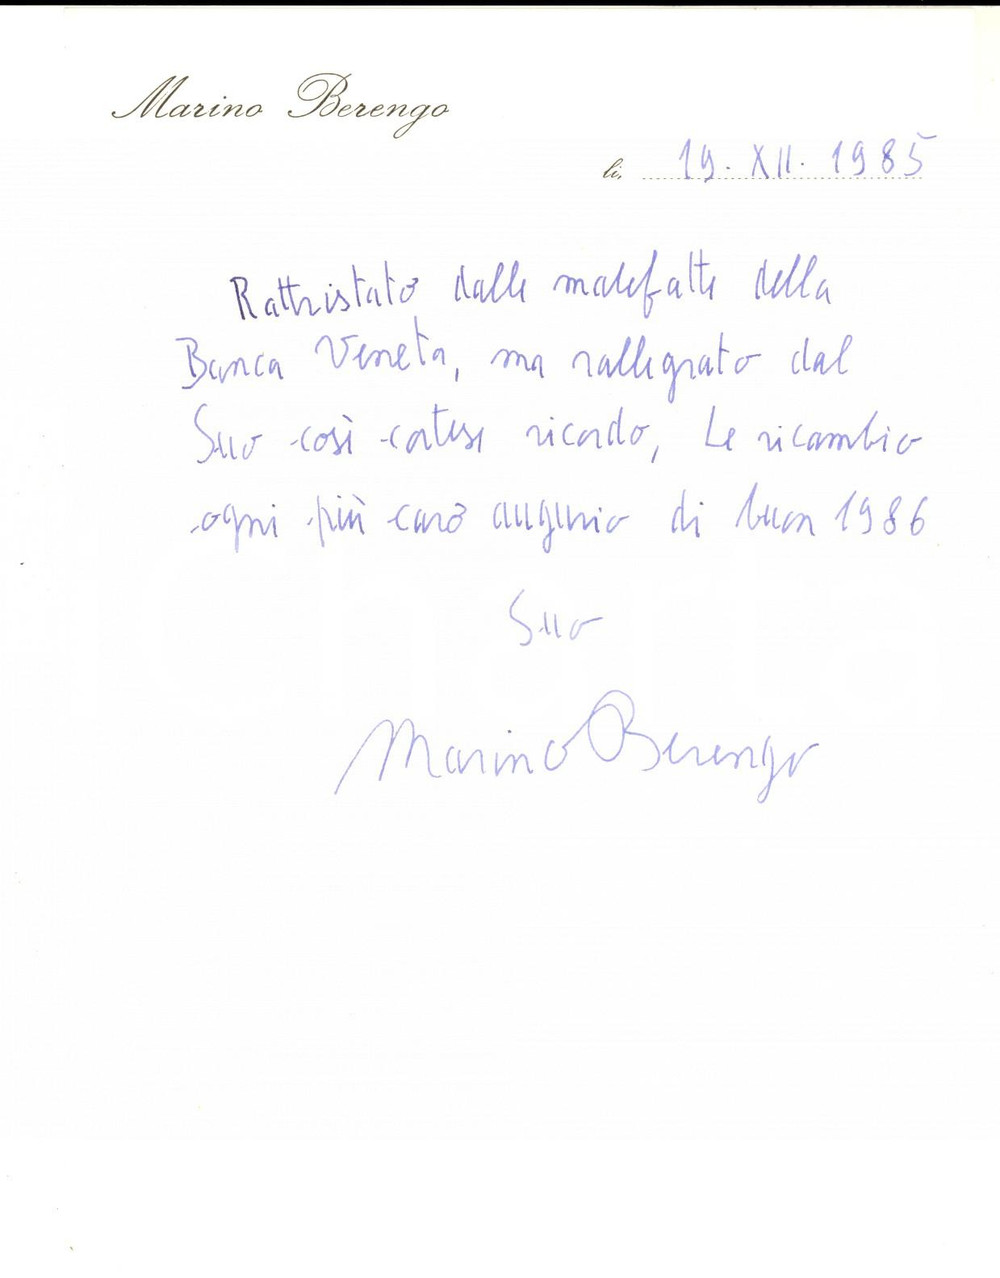 Marino Berengo
lì, 19. XII. 1985
Rattristato dalle malefatte della
Banca Veneta, ma rallegrato dal
Suo così cortese ricordo, Le ricambio
ogni più caro augurio di buon 1986
Suo
Marino Berengo